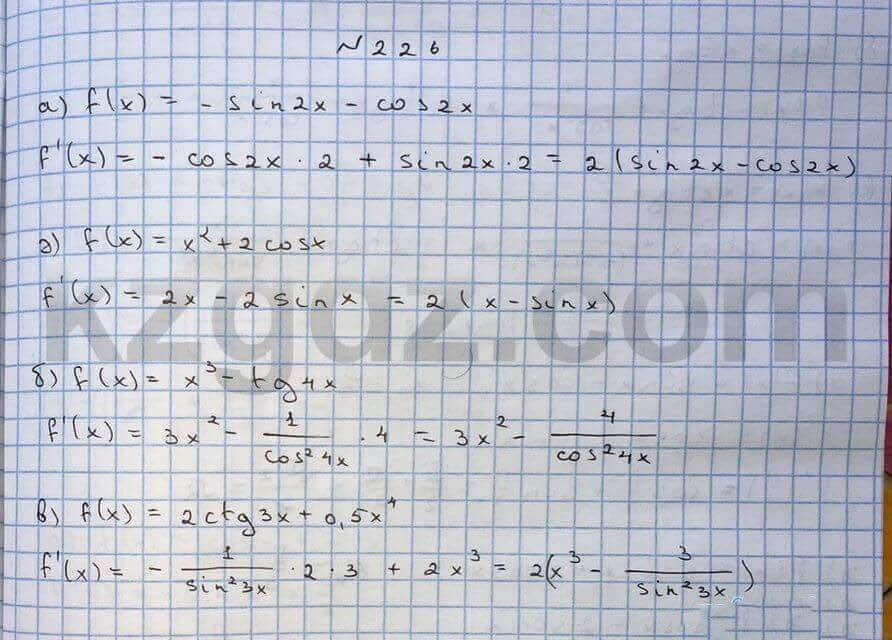 № 226
а) f(x) = - sin2x - cos2x
f'(x) = - cos2x · 2 + sin2x · 2 = 2(sin2x - cos2x)
г) f(x) = x² + 2cosx
f'(x) = 2x - 2sinx = 2(x - sinx)
kzgdz.com
б) f(x) = x³ - tg4x
f'(x) = 3x² - 1/cos²4x · 4 = 3x² - 4/cos²4x
в) f(x) = 2ctg3x + 0,5x⁴
f'(x) = - 1/sin²3x · 2 · 3 + 2x³ = 2(x³ - 3/sin²3x)